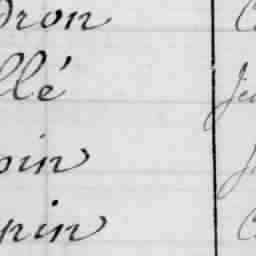 dron C
llé Je
pin J
pin C